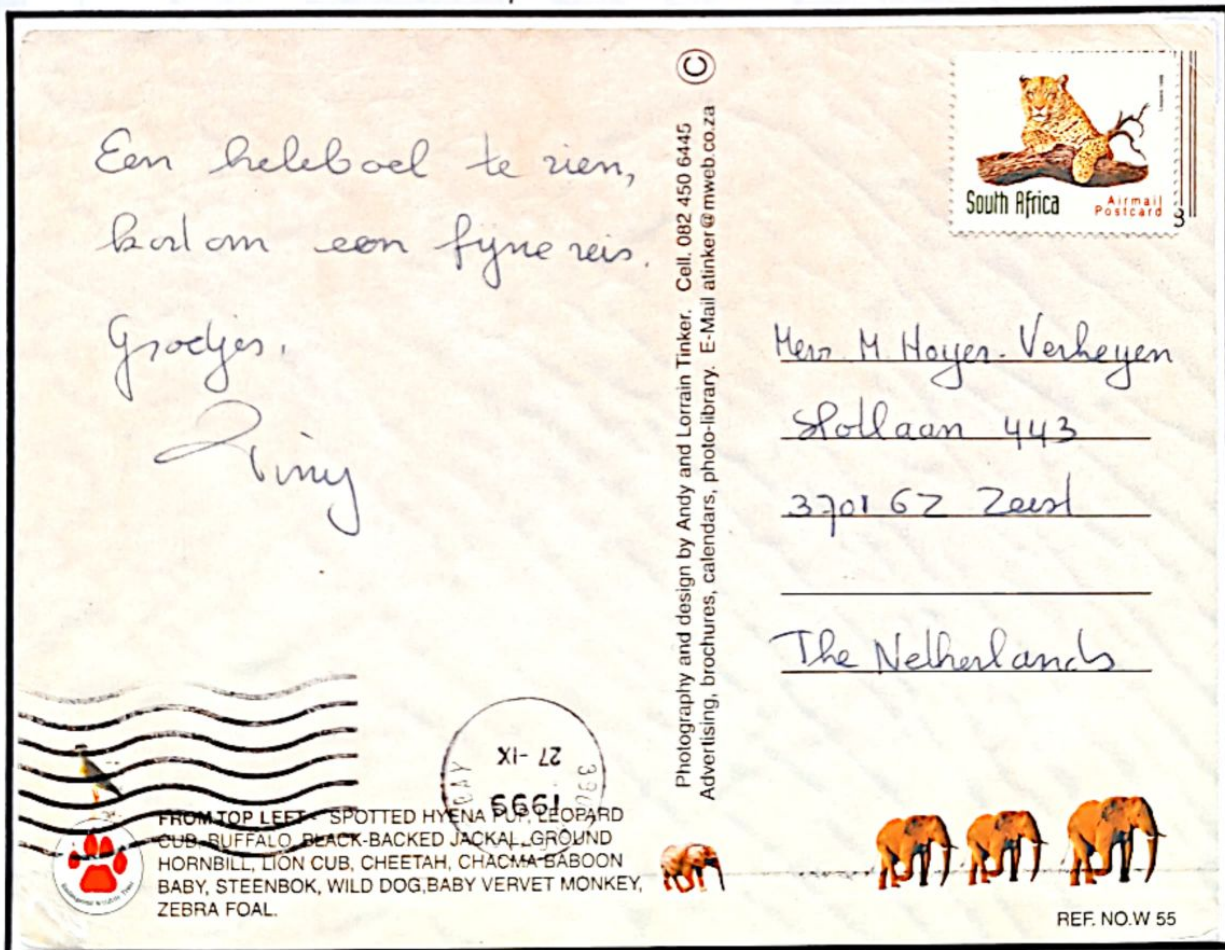 Een heleboel te zien,
kortom een fijne reis.
Groetjes,
Tiny
South Africa
Airmail
Postcard
Photography and design by Andy and Lorrain Tinker. Cell. 082 450 6445
Advertising, brochures, calendars, photo-library. E-Mail atinker@mweb.co.za
©
Mevr. M. Hoyer-Verheyen
Slotlaan 443
3701 GZ Zeist
The Netherlands
27-IX
1999
FROM TOP LEFT - SPOTTED HYENA PUP, LEOPARD
CUB, BUFFALO, BLACK-BACKED JACKAL, GROUND
HORNBILL, LION CUB, CHEETAH, CHACMA BABOON
BABY, STEENBOK, WILD DOG,BABY VERVET MONKEY,
ZEBRA FOAL.
REF. NO.W 55